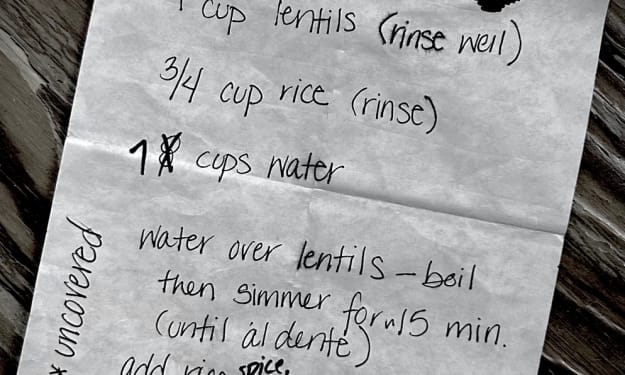 cup lentils (rinse well)
3/4 cup rice (rinse)
1 cups water
water over lentils – boil
then simmer for ~15 min.
(until al dente)
* uncovered
add rice spice.